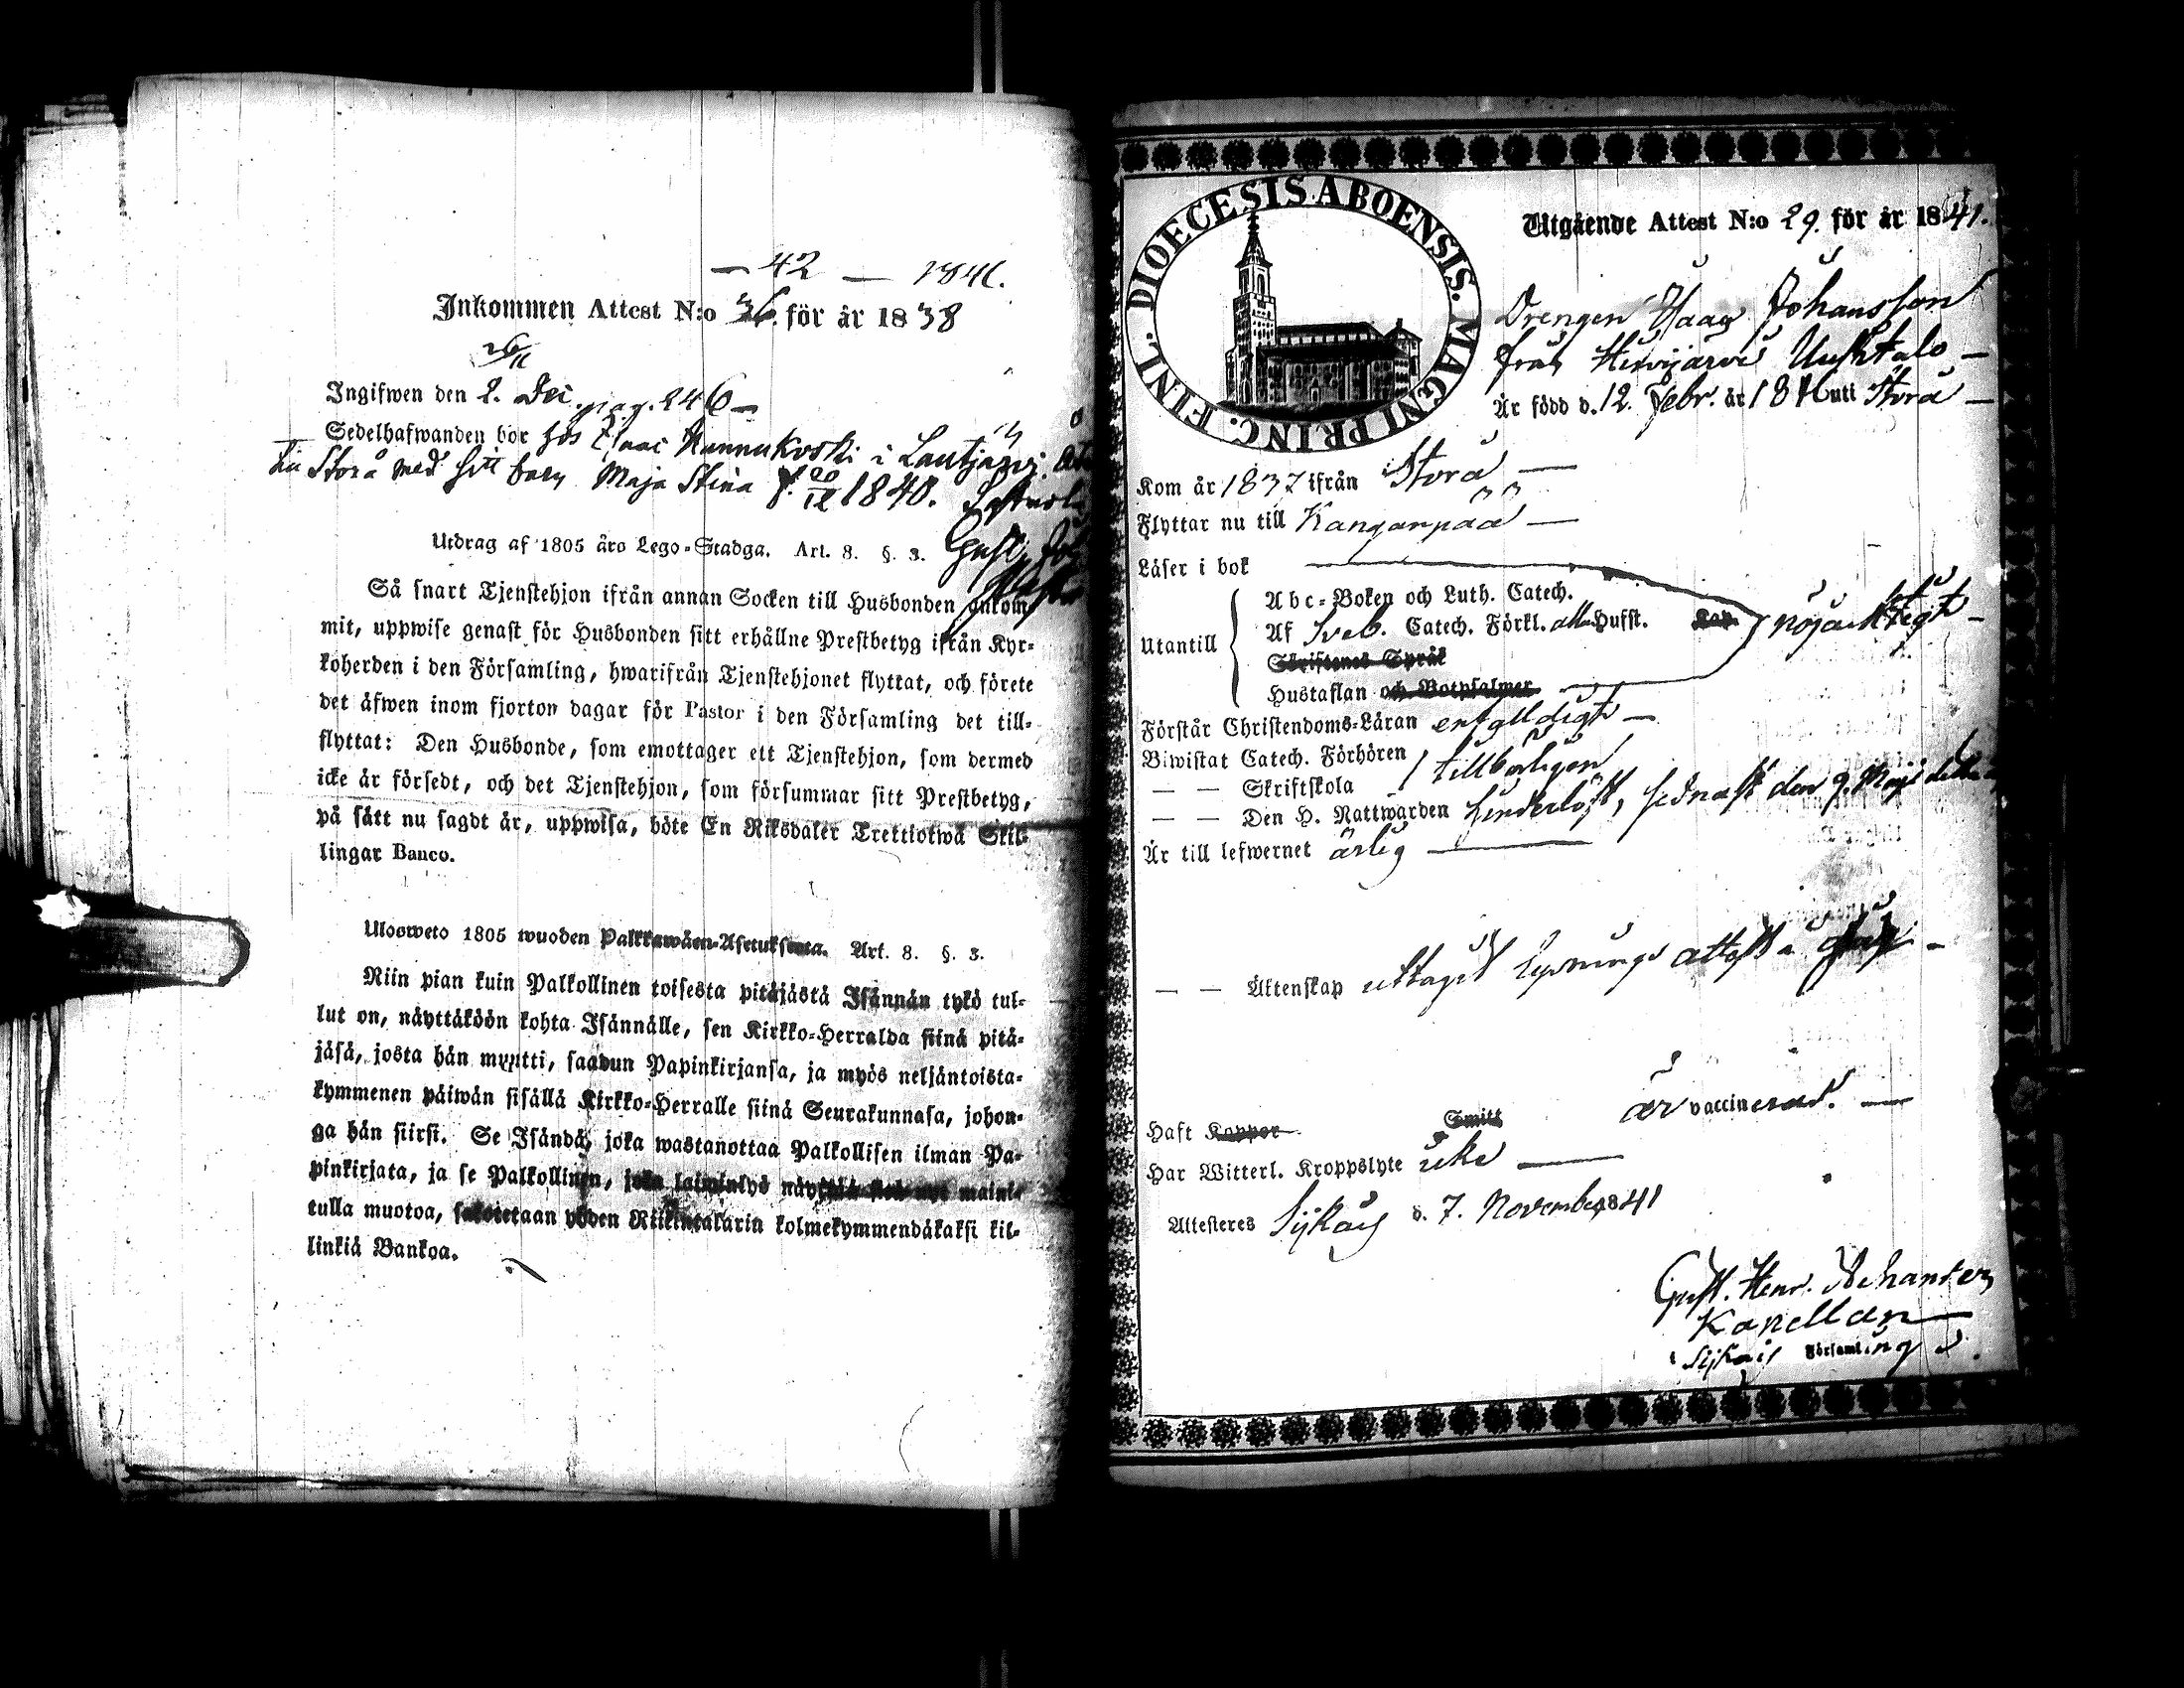 — 42 — 1841.
Inkommen Attest N:o 36. för år 1838
26/11
Ingifwen den 2. Dec. pag. 246 —
Sedelhafwanden bor hos Isaac Nannukoski i Lautjärvi
till Storå med sitt barn Maja Stina f. 20/12 1840.
Utdrag af 1805 års Lego-Stadga. Art. 8. §. 3. Gust.
Så snart Tjenstehjon ifrån annan Socken till Husbonden ankom-
mit, uppwise genast för Husbonden sitt erhållne Prestbetyg ifrån Kyr-
koherden i den Församling, hwarifrån Tjenstehjonet flyttat, och förete
det äfwen inom fjorton dagar för Pastor i den Församling det till-
flyttat: Den Husbonde, som emottager ett Tjenstehjon, som dermed
icke är försedt, och det Tjenstehjon, som försummar sitt Prestbetyg,
på sätt nu sagdt är, uppwisa, böte En Riksdaler Trettiotwå Skil-
lingar Banco.
Ulosweto 1805 wuoden Palkkawäen-Asetuksesta. Art. 8. §. 3.
Niin pian kuin Palkollinen toisesta pitäjästä Isännän tykö tul-
lut on, näyttäköön kohta Isännälle, sen Kirkko-Herralda siinä pitä-
jäsä, josta hän muutti, saadun Papinkirjansa, ja myös neljäntoista-
kymmenen päiwän sisällä Kirkko-Herralle siinä Seurakunnasa, johon-
ga hän siirsi. Se Isändä, joka wastanottaa Palkollisen ilman Pa-
pinkirjata, ja se Palkollinen, joka laiminlyö näyttää sen nyt maini-
tulla muotoa, sakotetaan yhden Riikintalarin kolmekymmendäkaksi kil-
linkiä Bankoa.
DIOECESIS ABOENSIS. MAGNI PRINC. FINL.
Utgående Attest N:o 29. för år 1841.
Drengen Isaac Johansson
från Hirvijärvi Uusitalo —
Är född d. 12. Febr. år 1816 uti Storå —
Kom år 1837 ifrån Storå —
Flyttar nu till Kanganpää —
Läser i bok
Utantill
Abc-Boken och Luth. Catech.
Af Sveb. Catech. Förkl. alla Hufst. Kap. nöjaktigt —
Skriftenes Språk
Hustaflan och Botpsalmer
Förstår Christendoms-Läran enfalldigt —
Biwistat Catech. Förhören
— — Skriftskola tillbörligen
— — Den H. Nattwarden hinderlöst, sednast den 9. Maji
Är till lefwernet ärlig —
— — Äktenskap uttaget Lysnings attest
Haft Koppor Smitt är vaccinerad. —
Har Witterl. Kroppslyte icke —
Attesteres Sijkais d. 7. November 1841
Gust. Henr. Achanter
Kapellan
i Sijkais Församling